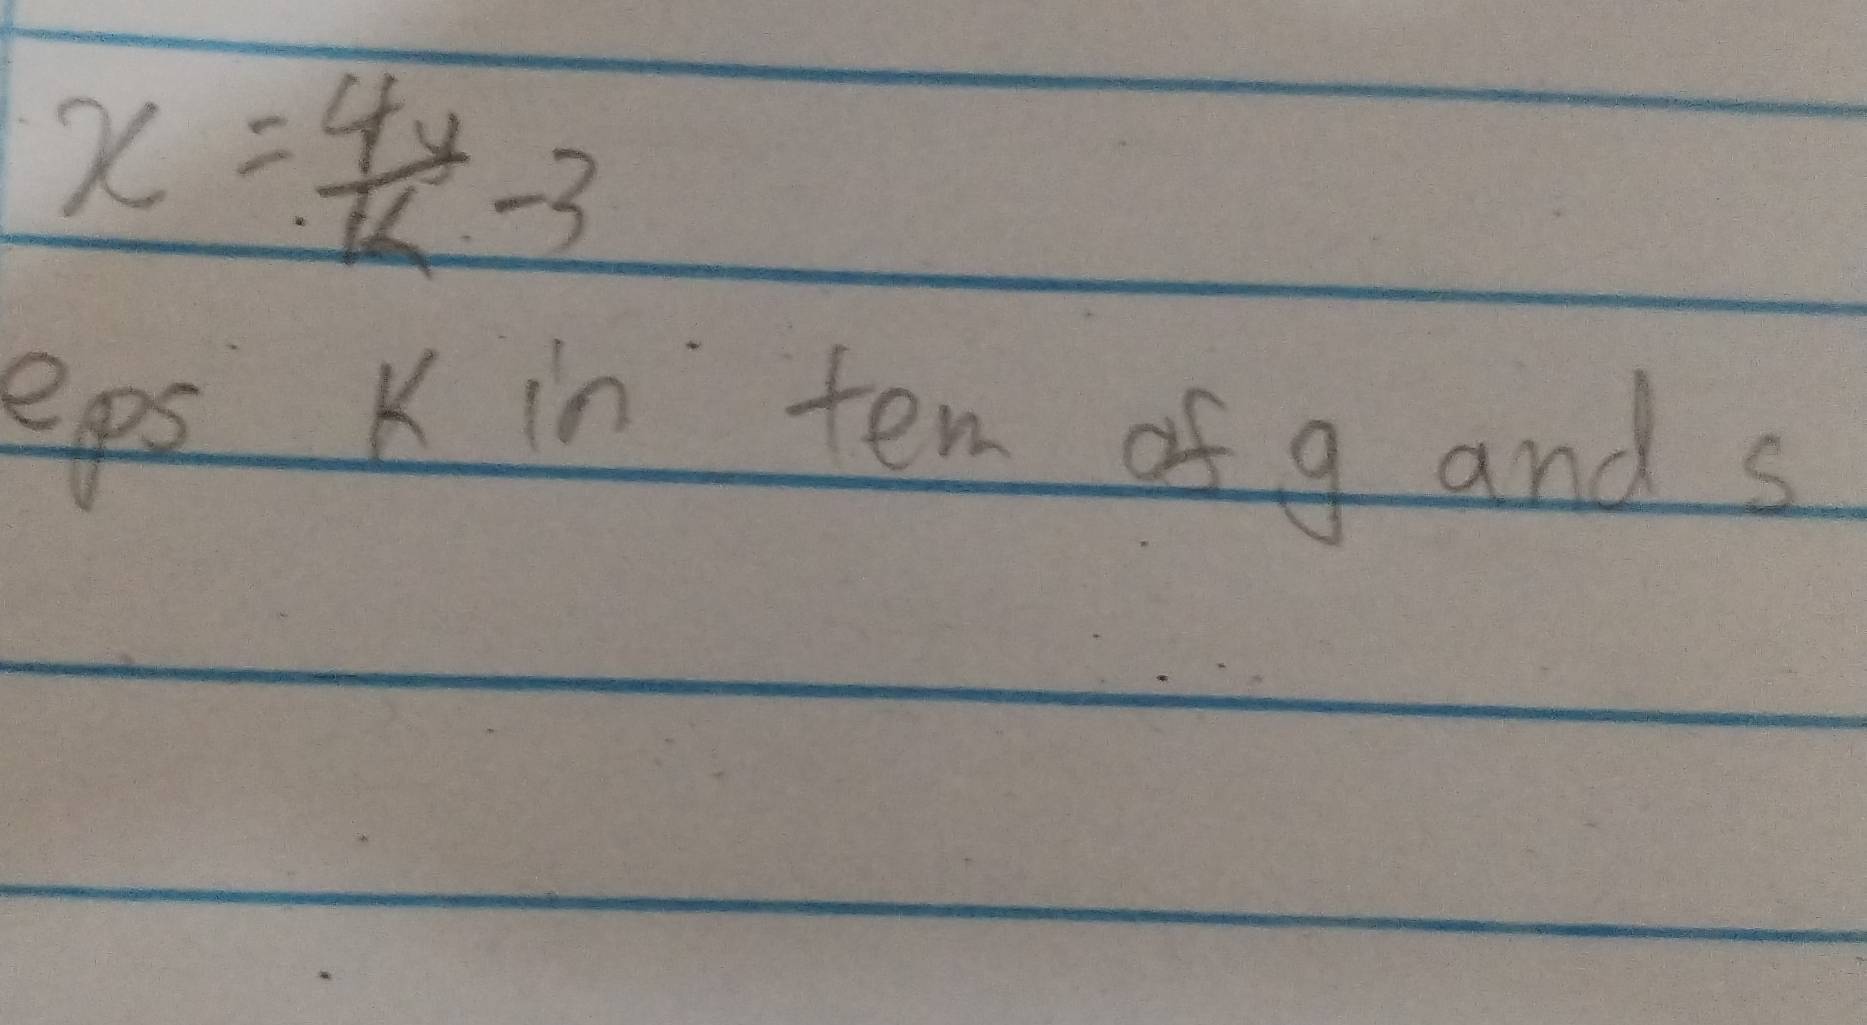 x = 4y/k - 3
eps K in tem of g and s